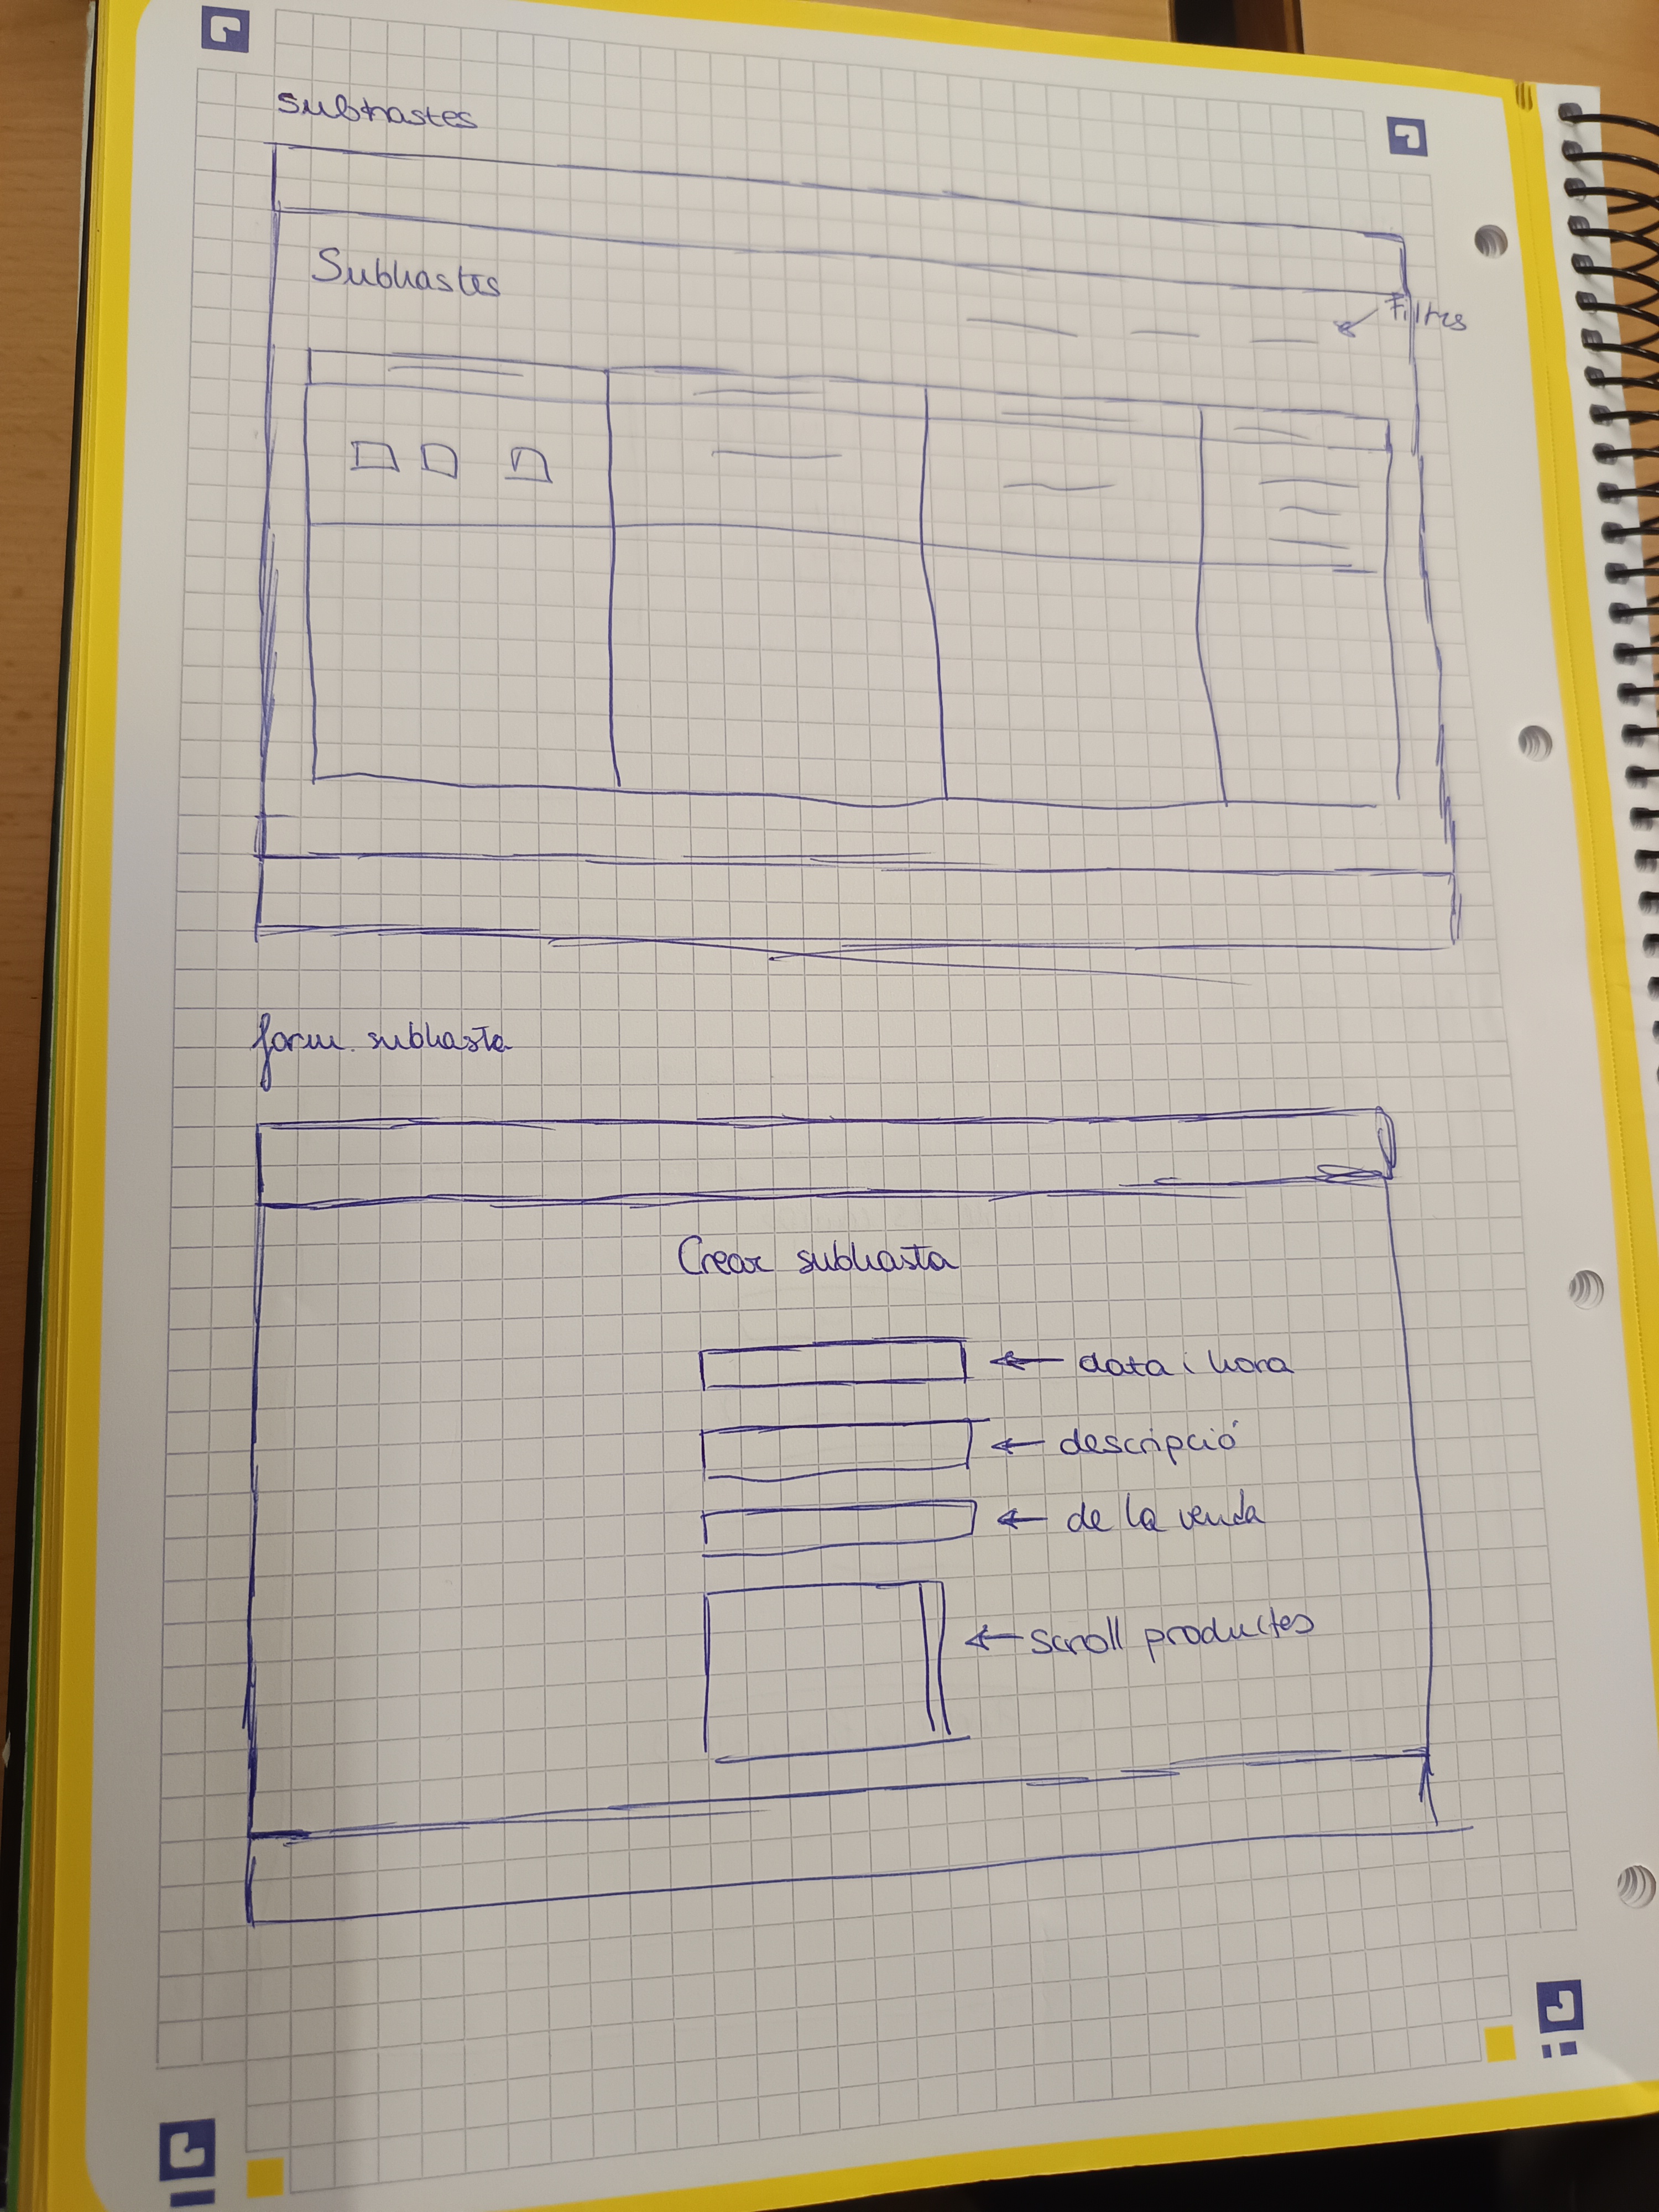 subhastes
Subhastes
Filtres
form. subhasta
Crear subhasta
← data i hora
← descripció
← de la venda
← scroll productes